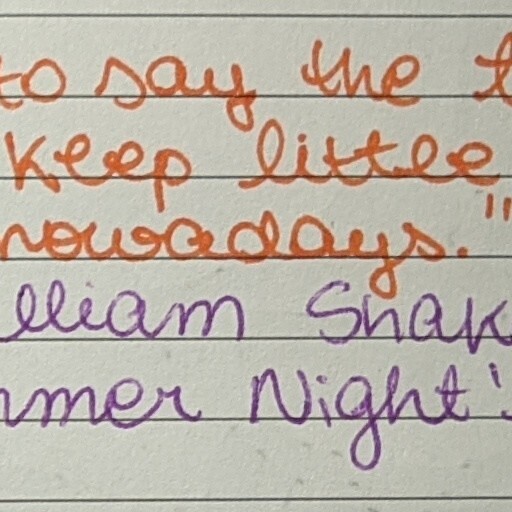 to say the t
keep little
nowadays."
lliam Shak
mmer Night'